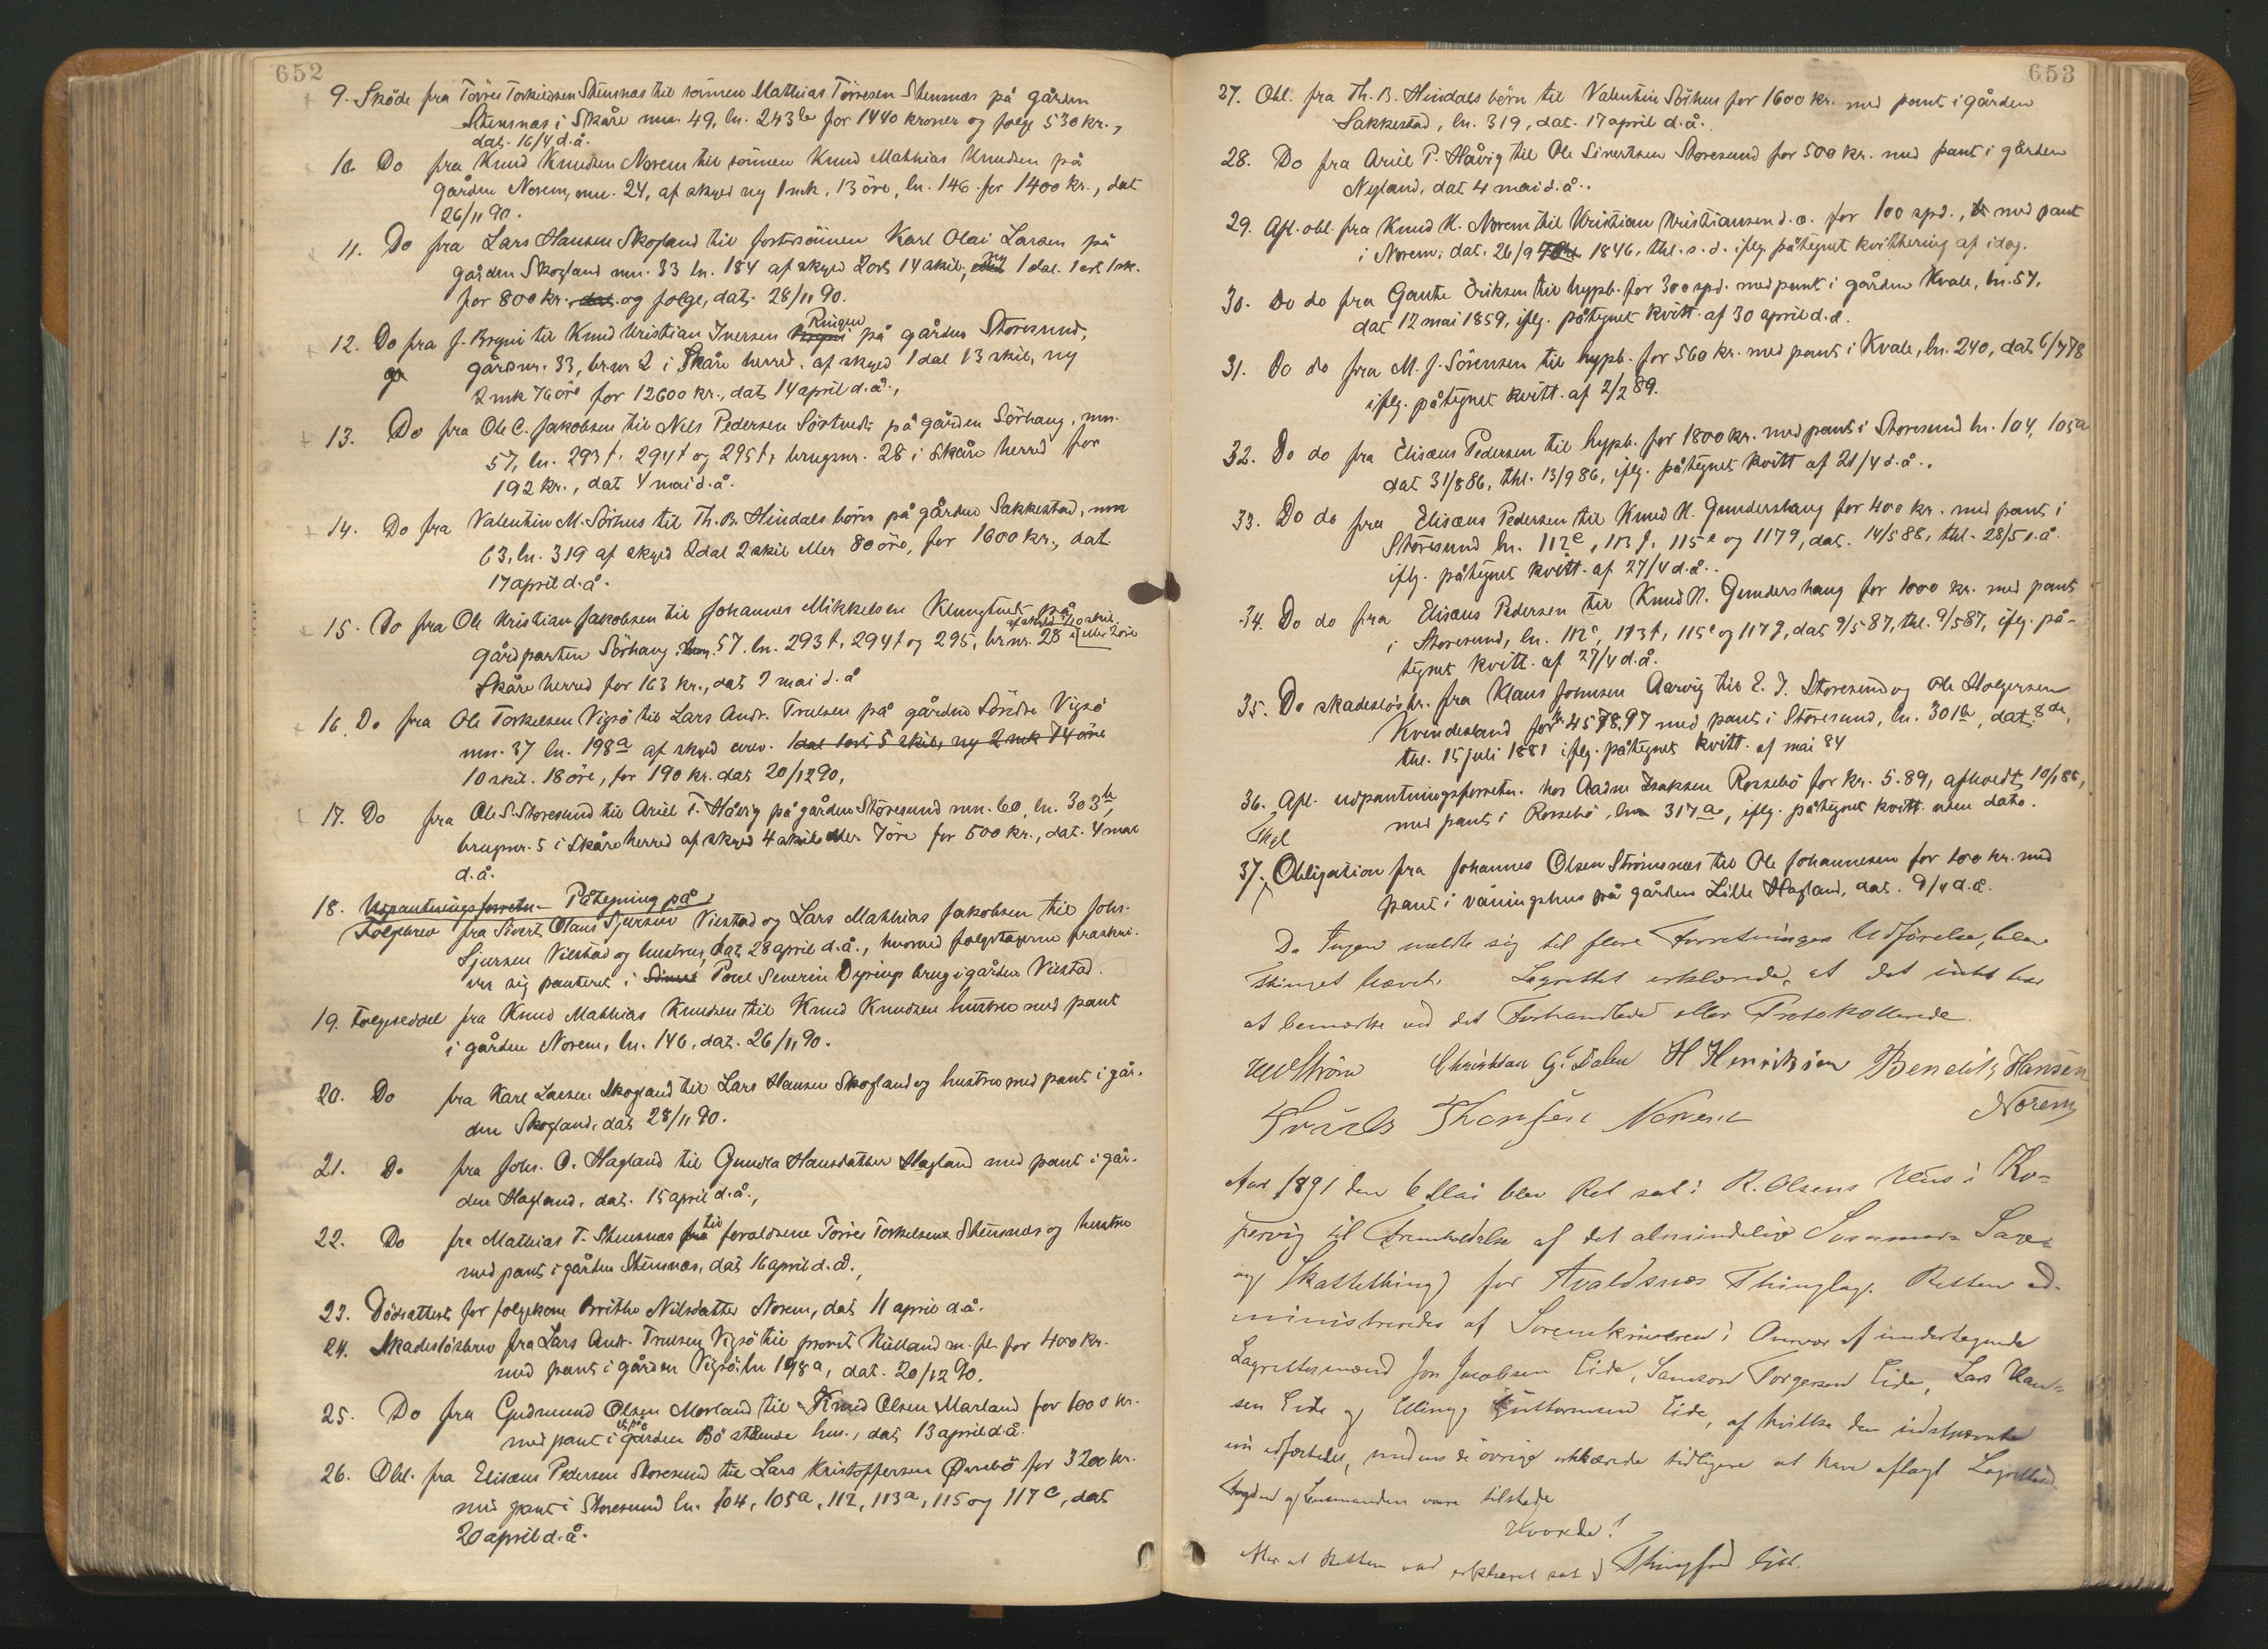 652
9. Sköde fra Törres Torkildsen Stensnæs til sönnen Mathias Törresen Stensnæs på gården
Stensnæs i Skåre mn. 49, ln. 243b for 1440 kroner og folge 530 kr.,
dat. 16/4 d.å.
10. Do fra Knud Knudsen Norem til sönnen Knud Mathias Knudsen på
gården Norem, mn. 24, af skyld ny 1 mk, 13 öre, ln. 146 for 1400 kr., dat
26/11 90.
11. Do fra Lars Hansen Skogland til fostersönnen Karl Olai Larsen på
gården Skogland mn. 33 ln. 184 af skyld 2 ort 14 skil., ny 1 dal. 1 ort 1 sk.
for 800 kr. dat. og folge, dat. 28/11 90.
12. Do fra J. Brynie til Knud Kristian Iversen Ringen på gården Storesund,
gårdsnr. 33, br.nr 2 i Skåre herred. af skyld 1 dal 13 skil, ny
2 mk 76 öre for 12600 kr., dat 14 april d.å.,
13. Do fra Ole C. Jakobsen til Nels Pedersen Sörtvedt på gården Sörhaug, mn.
57, ln. 293f, 294f og 295f, brugsnr. 28 i Skåre herred for
192 kr., dat 4 mai d.å.
14. Do fra Valentin M. Sörhus til Th. B. Hindals börn på gården Sakkestad, mn
63, ln. 319 af skyld 2 dal 2 skil eller 80 öre, for 1600 kr., dat
17 april d.å.
15. Do fra Ole Kristian Jakobsen til Johannes Mikkelsen Klungtvet på
gårdparten Sörhaug 57. ln. 293f, 294f og 295, br.nr. 28 i
Skåre herred for 163 kr., dat 2 mai d.å
16. Do fra Ole Torkelsen Vigsö til Lars Andr. Truelsen på gården Söndre Vigsö
mn. 37 ln. 198a af skyld 1 dal 1 ort 5 skil, ny 2 mk 74 öre
10 skil. 18 öre, for 190 kr. dat 20/12 90,
17. Do fra Ole S. Storesund til Ariel T. Håvig på gården Störesund mn. 60, ln. 303h,
brugsnr. 5 i Skåre herred af skyld 4 skil eller 7 öre for 500 kr., dat. 4 mai
d.å.
18. Udpantningsforretn. Påtegning på
Folgebrev fra Sivert Olaus Sjursen Vikstad og Lars Mathias Jakobsen til Johs.
Sjursen Vikstad og hustru, dat 28 april d.å., hvorved folgetagerne fraskri-
ver sig panteret i Poul Severin brug i gården Vikstad.
19. Folgeseddel fra Knud Mathias Knudsen til Knud Knudsen hustru med pant
i gården Norem, ln. 146, dat. 26/11 90.
20. Do fra Karl Larsen Skogland til Lars Hansen Skogland og hustru med pant i går-
den Skogland, dat 28/11 90.
21. Do fra Johs. O. Hagland til Gunla Hansdatter Hagland med pant i går-
den Hagland, dat. 15 april d.å.,
22. Do fra Mathias T. Stensnæs til foreldrene Törres Torkelsen Stensnæs og hustru
med pant i gården Stensnæs, dat 16 april d.å.,
23. Dödsattest for folgekone Brithe Nilsdatter Norem, dat 11 april d.å.
24. Skadeslösbrev fra Lars Andr. Truelsen Vigsö til provst Kielland m. fl. for 400 kr.
med pant i gården Vigsö ln 198a, dat. 20/12 90.
25. Do fra Gudmund Olsen Morland til Knud Olsen Marland for 1000 kr.
med pant i et på gården Bö stående hus., dat 13 april d.å.
26. Obl. fra Elisæus Pedersen Storesund til Lars Kristoffersen Örebö for 3200 kr.
med pant i Storesund ln. 104, 105a, 112, 113a, 115 og 117c, dat
20 april d.å.
653
27. Obl. fra Th. B. Hindals börn til Valentin Sörhus for 1600 kr. med pant i gården
Sakkestad, ln. 319, dat. 17 april d.å.
28. Do fra Ariel T. Håvig til Ole Sivertsen Storesund for 500 kr. med pant i gården
Nyland, dat 4 mai d.å..
29. Afl. obl. fra Knud K. Norem til Kristian Kristiansen d.o. for 100 spd., med pant
i Norem, dat. 26/9 1846, thl. s.d. iflg. påtegnet kvittering af idag.
30. Do do fra Gaute Eriksen til hypb. for 300 spd. med pant i gården Kvale, ln. 57,
dat 12 mai 1859, iflg. påtegnet kvitt. af 30 april d.å.
31. Do do fra M. J. Sörensen til hypb. for 560 kr. med pant i Kvale, ln. 240, dat 6/7 78
iflg. påtegnet kvitt. af 2/2 89.
32. Do do fra Elisæus Pedersen til hypb. for 1800 kr. med pant i Storesund ln. 104, 105a
dat 31/8 86, thl. 13/9 86, iflg. påtegnet kvitt af 21/4 d.å..
33. Do do fra Elisæus Pedersen til Knud K. Gundershaug for 400 kr. med pant i
Störesund ln. 112e, 113f, 115e og 117g, dat. 14/5 88, thl. 28/5 s.å.
iflg. påtegnet kvitt. af 27/4 d.å..
34. Do do fra Elisæus Pedersen til Knud K. Gundershaug for 1000 kr. med pant
i Storesund, ln. 112e, 113f, 115e og 117g, dat 9/5 87, thl. 9/5 87, iflg. på-
tegnet kvitt. af 27/4 d.å.
35. Do skadeslösbr. fra Klaus Johnsen Aarvig til E. J. Storesund og Ole Holgersen
Kvindesland for kr 4578.97 med pant i Störesund, ln. 301a, dat. 8de,
thl. 15 juli 1881 iflg. påtegnet kvitt. af mai 84
36. Afl. udpantningsforretn. hos Aadne Isaksen Rossebö for kr. 5.89, afholdt 10/1 86,
med pant i Rossebö, ln 317a, iflg. påtegnet kvitt uden dato.
Thgl
37. Obligation fra Johannes Olsen Strömsnæs til Ole Johannesen for 100 kr. med
pant i våningshus på gården Lille Hagland, dat. 9/4 d.å.
Da Ingen meldte sig til flere Forretningers Udförelse, blev
Thinget hævet. Lagrettet erklærede, at det intet har
at bemærke ved det Forhandlede eller Protokollerede.
Christian G. Dalen H Henriksen Benedik Hansen
Norem
Thomsen Norem
Aar 1891 den 6 Mai blev Ret sat i R. Olsens Hus i Ko-
pervig til Fremholdelse af det almindelige Sommer- Sage-
og Skattething for Avaldsnæs Thinglag. Retten ad-
ministreredes af Sorenskriveren i Overvær af undertegnede
Lagrettesmænd Jon Jacobsen Eide, Samson Torgersen Eide, Lars Han-
sen Eide og Elling Guttormsen Eide, af hvilke den sidstnævnte
nu edfæstedes, medens de övrige erklærede tidligere at have aflagt Lagretteed.
Fogden og Lensmanden vare tilstede
Hvorda!
Efter at Retten var erklæret sat og Thingfred lyst.